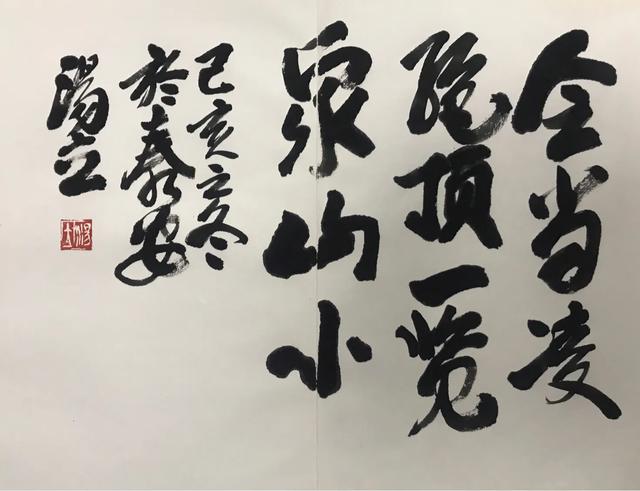 会当凌
绝顶一览
众山小
己亥立冬
於泰安
湯立